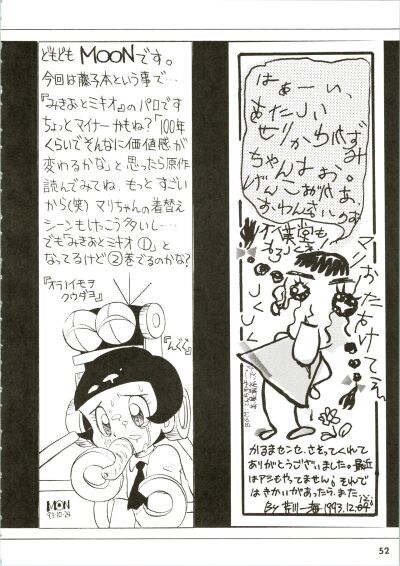 どもども MOONです。
今回は藤子本という事で…
『みきおとミキオ』のパロです
ちょっとマイナーかもね?「100年
くらいでそんなに価値感が
変わるかな」と思ったら原作
読んでみてね。もっとすごい
から(笑)マリちゃんの着替え
シーンもけっこう多いし…
でも『みきおとミキオ①』と
なってるけど②巻でるのかな?
『オラノイモヲ
クウダヨ』
MOON
93・10・24
はぁーい、
あたしい
せりかわぱずみ
ちゃんよぉ。
げんこおがあ、
マリ
おたすけてぇ
しくしく
かるまセンセ、さそってくれて
ありがとうございました。最近
はアシもやってません。それで
はきかいがあったら、また。
1993.12.
52